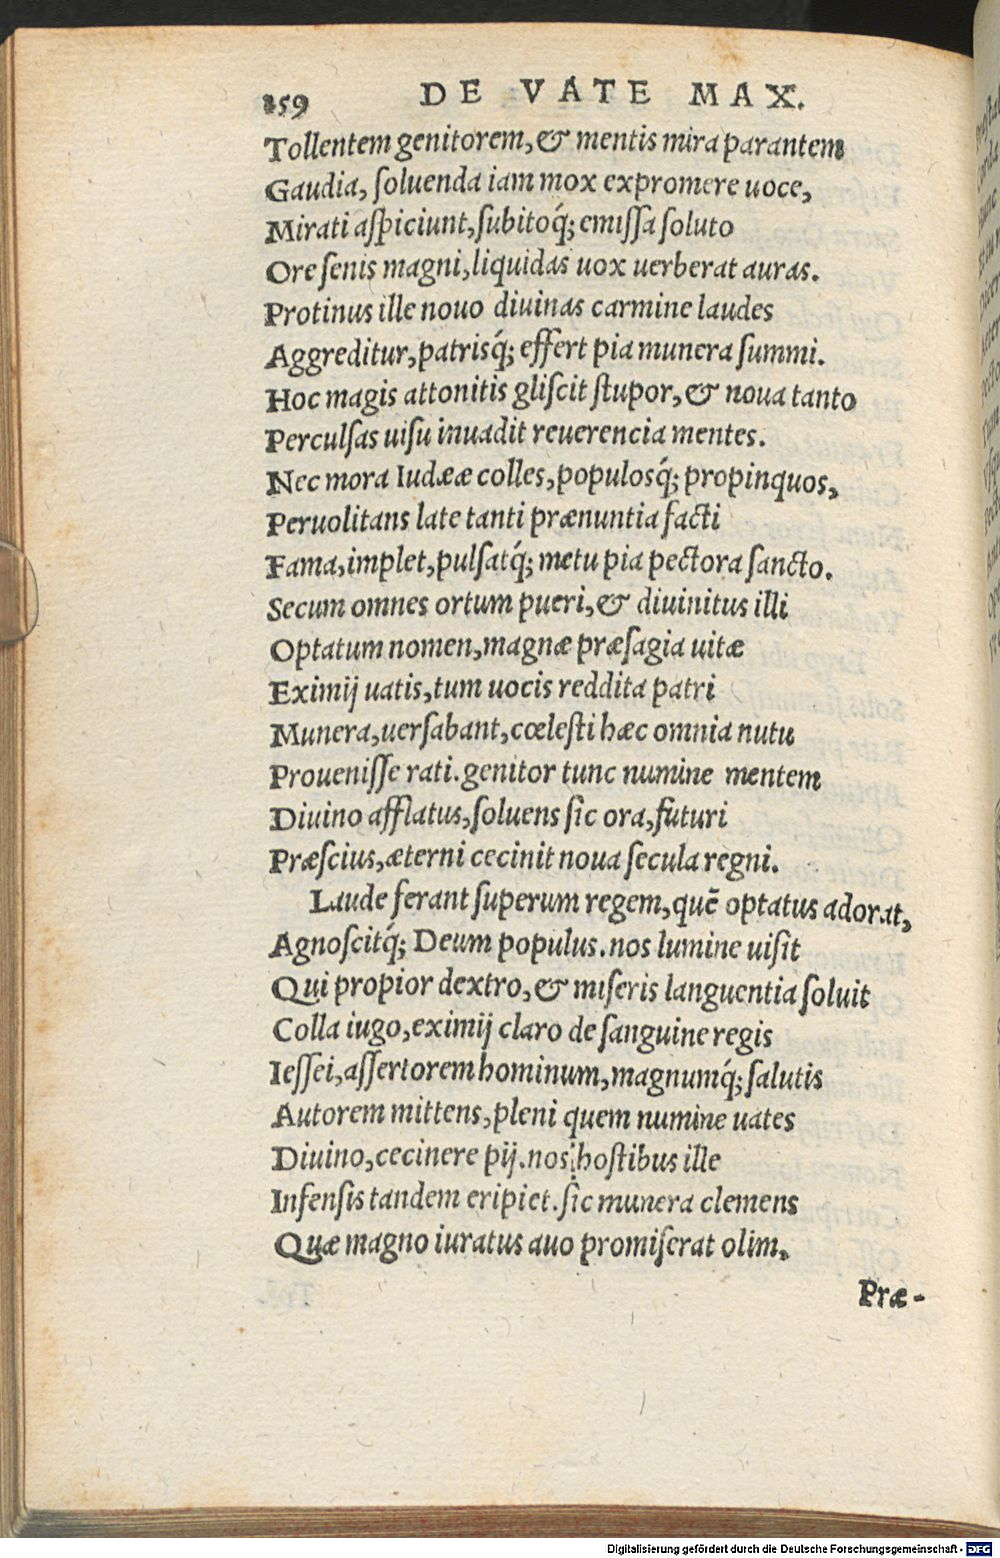 159 DE VATE MAX.
Tollentem genitorem, & mentis mira parantem
Gaudia, ſoluenda iam mox expromere uoce,
Mirati aſpiciunt, ſubitoq́; emiſſa ſoluto
Ore ſenis magni, liquidas uox uerberat auras.
Protinus ille nouo diuinas carmine laudes
Aggreditur, patrisq́; effert pia munera ſummi.
Hoc magis attonitis gliſcit ſtupor, & noua tanto
Perculſas uiſu inuadit reuerencia mentes.
Nec mora Iudææ colles, populosq́; propinquos,
Peruolitans late tanti prænuntia facti
Fama, implet, pulſatq́; metu pia pectora ſancto.
Secum omnes ortum pueri, & diuinitus illi
Optatum nomen, magnæ præſagia uitæ
Eximij uatis, tum uocis reddita patri
Munera, uerſabant, cœleſti hæc omnia nutu
Proueniſſe rati. genitor tunc numine mentem
Diuino afflatus, ſoluens ſic ora, futuri
Præſcius, æterni cecinit noua ſecula regni.
Laude ferant ſuperum regem, quē optatus adorat,
Agnoſcitq́; Deum populus. nos lumine uiſit
Qui propior dextro, & miſeris languentia ſoluit
Colla iugo, eximij claro de ſanguine regis
Ieſſei, aſſertorem hominum, magnumq́; ſalutis
Autorem mittens, pleni quem numine uates
Diuino, cecinere pij. nos hoſtibus ille
Infenſis tandem eripiet. ſic munera clemens
Quæ magno iuratus auo promiſerat olim,
Præ-
Digitalisierung gefördert durch die Deutsche Forschungsgemeinschaft - DFG